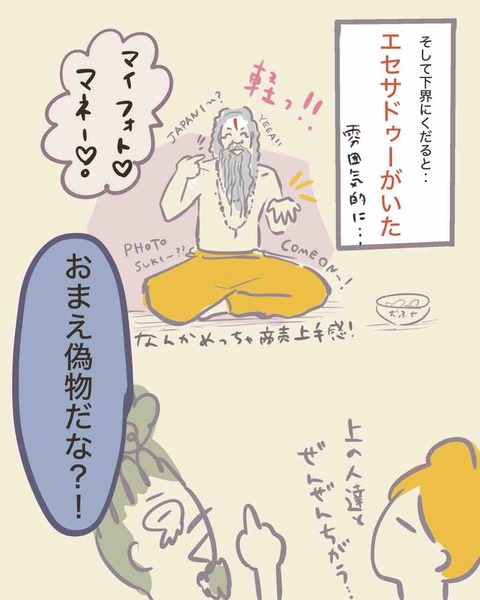 そして下界にくだると‥
エセサドゥーがいた
雰囲気的に…
軽っ!!
JAPAN!〜?
YEEA!!
マイフォト♡
マネー♡。
PHOTO
SUKI〜?!
COME ON〜!
おふせ
なんかめっちゃ商売上手感!
おまえ偽物だな?!
上の人達と
ぜんぜんちがう…